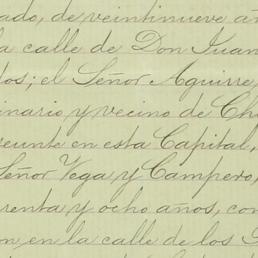 ado, de veintinueve añ
la calle de Don Juan
dos; el Señor Aguirre,
inario y vecino de Ch
seunte en esta Capital,
Señor Vega y Campero,
renta y ocho años, con
on en la calle de los